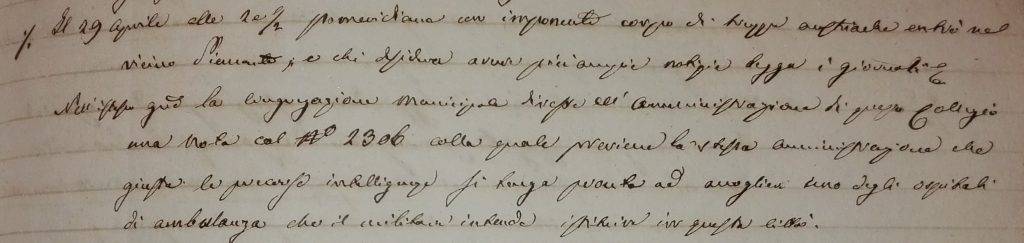 Il 29 Aprile alle 2 e ½ pomeridiane con imponente corpo di truppe austriache entrò nel
vicino Piemonte, e chi desidera avere più ampie notizie legga i giornali
Nell'istesso gno la Congregazione Municipale diresse all'Amministrazione di questo Collegio
una Nota col No 2306 colla quale previene la stessa amministrazione che
giusta le precorse intelligenze si tenga pronta ad accogliere uno degli ospitali
di ambulanza che il militare intende istituire in questa città.